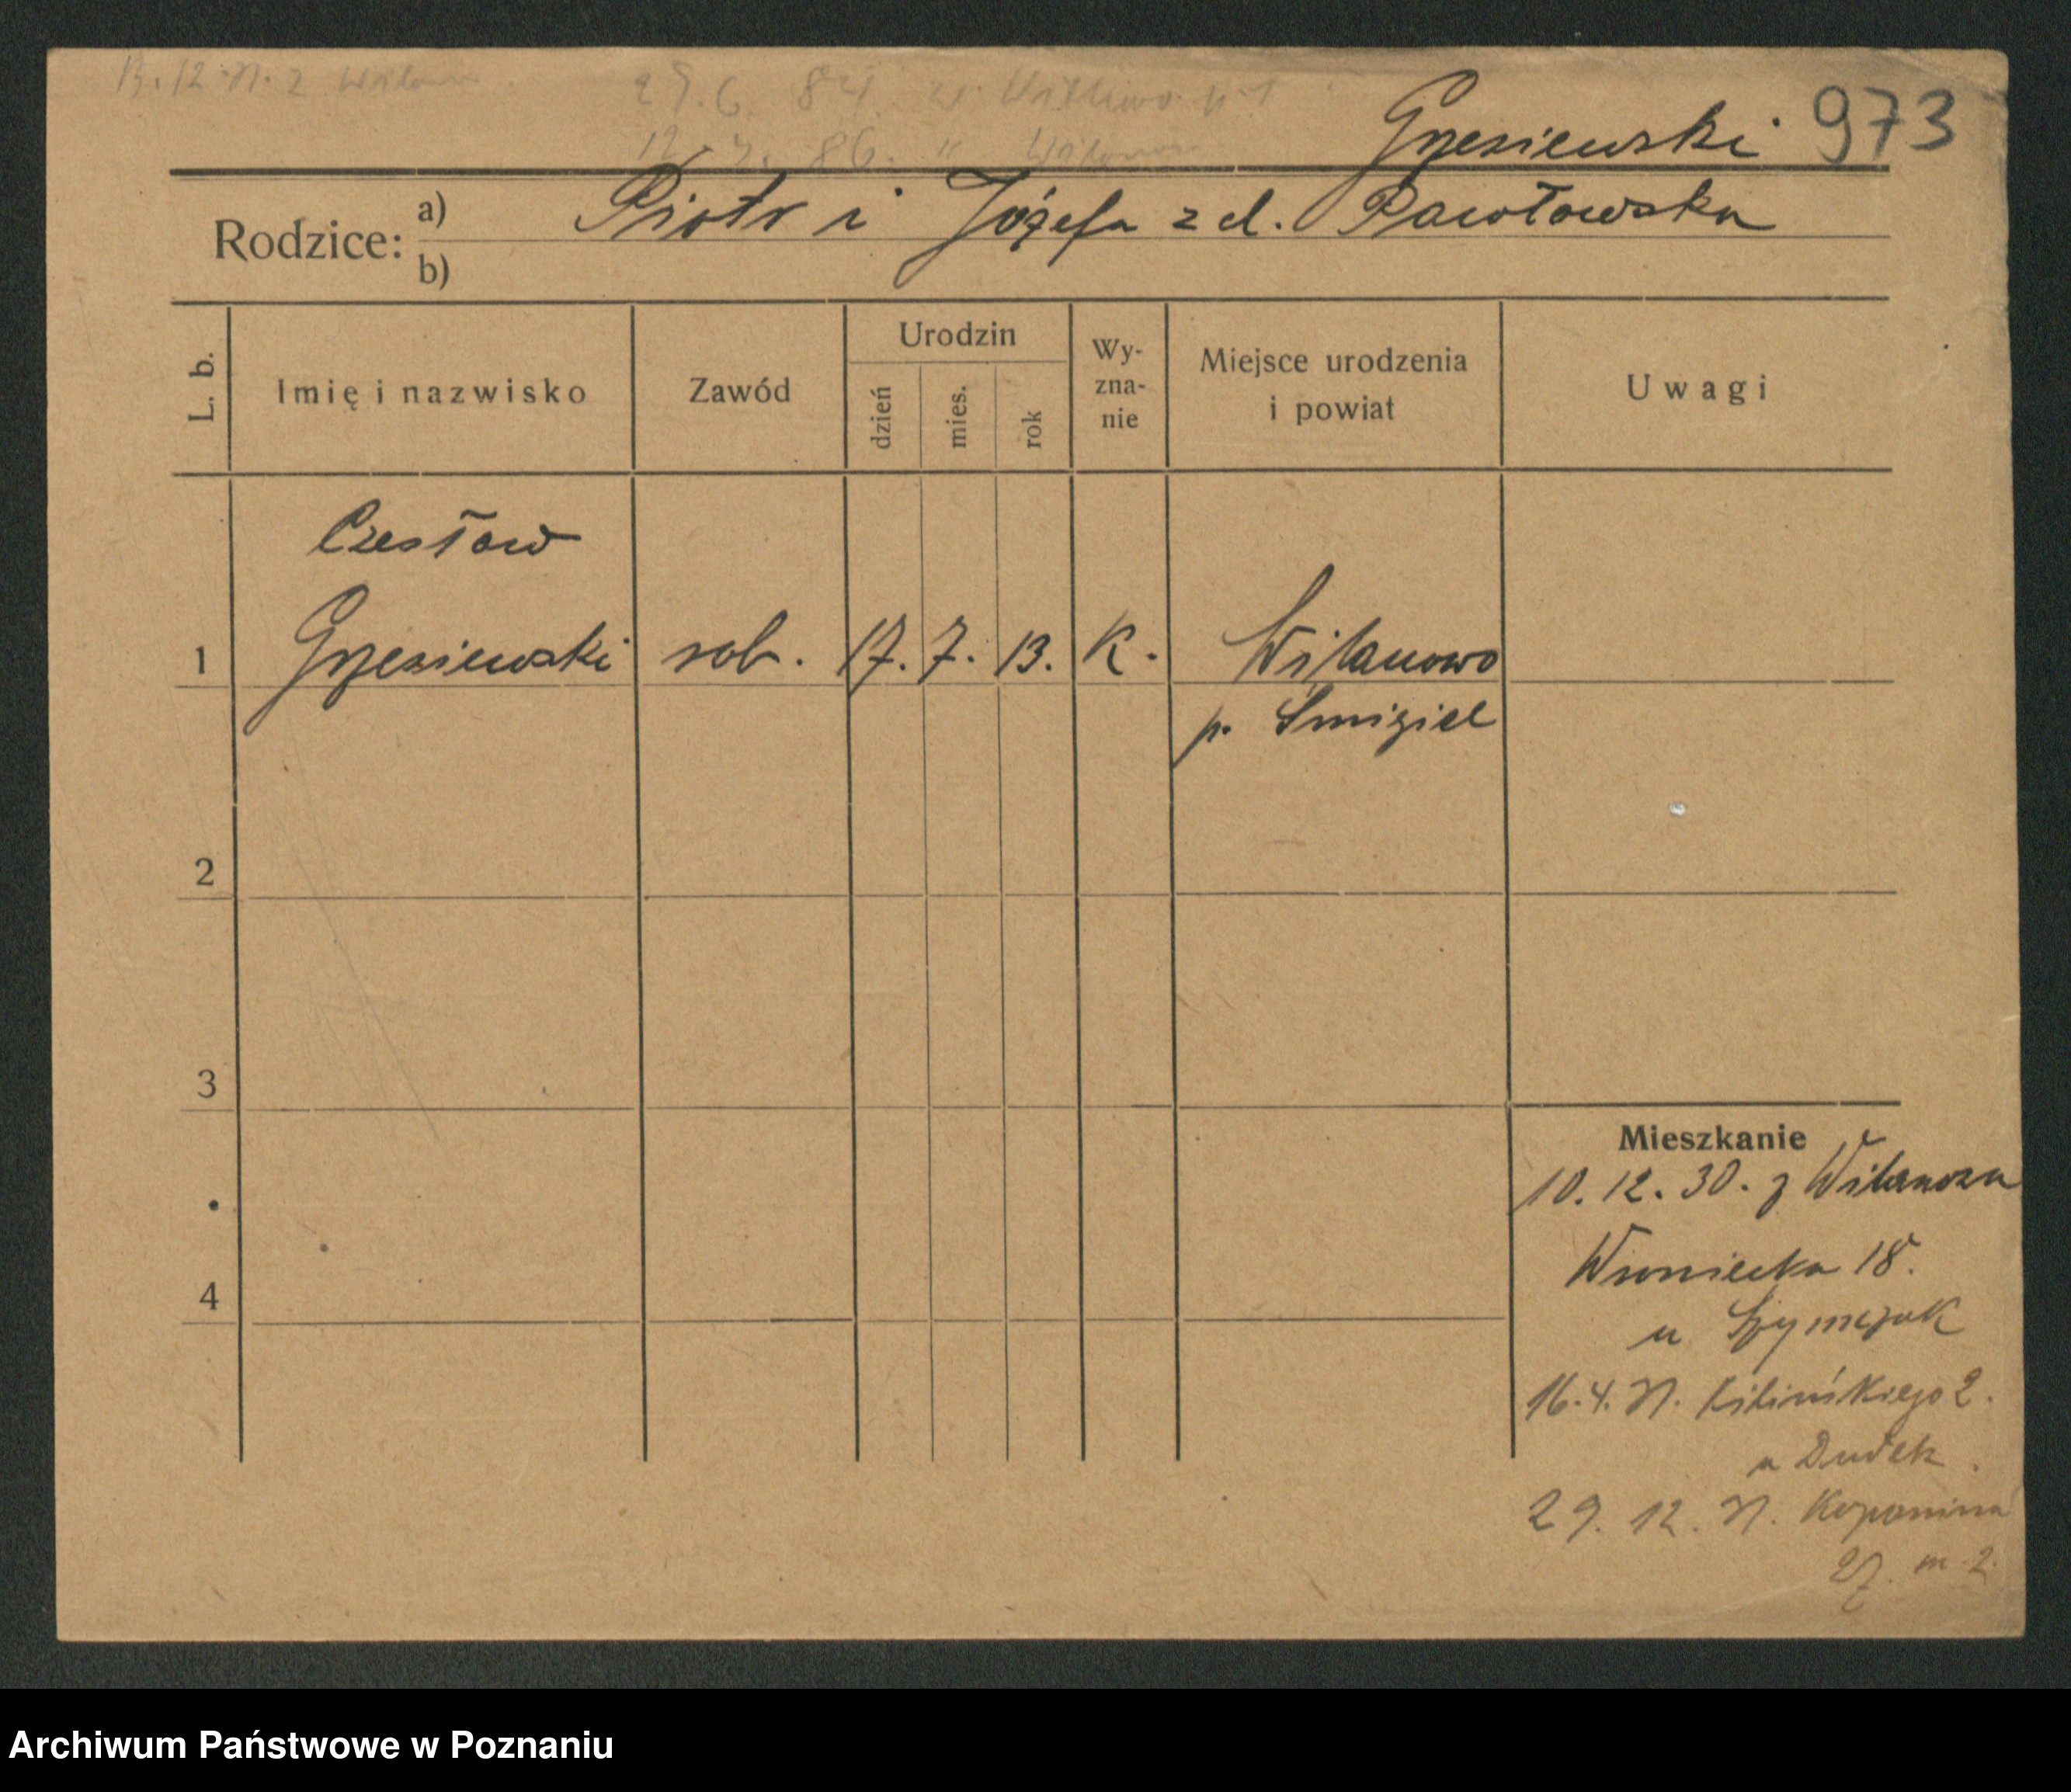 13. 12. 31. z Wilanow
29. 6. 84. w Witkowo p.
12. 3. 86. " Wilanowo
Grzesiewski 973
Rodzice: a) Piotr i Józefa z d. Pawłowska
b)
L. b.
Imię i nazwisko
Zawód
Urodzin
dzień
mies.
rok
Wy-
zna-
nie
Miejsce urodzenia
i powiat
Uwagi
Czesław
1 Grzesiewski rob. 17. 7. 13. K. Wilanowo
p. Śmigiel
2
3
4
Mieszkanie
10. 12. 30. z Wilanowa
Wroniecka 18.
u Szymczak
16. 4. 31. Kilińskiego 2.
u Dudek
29. 12. 31. Kopanina
27. m. 2.
Archiwum Państwowe w Poznaniu